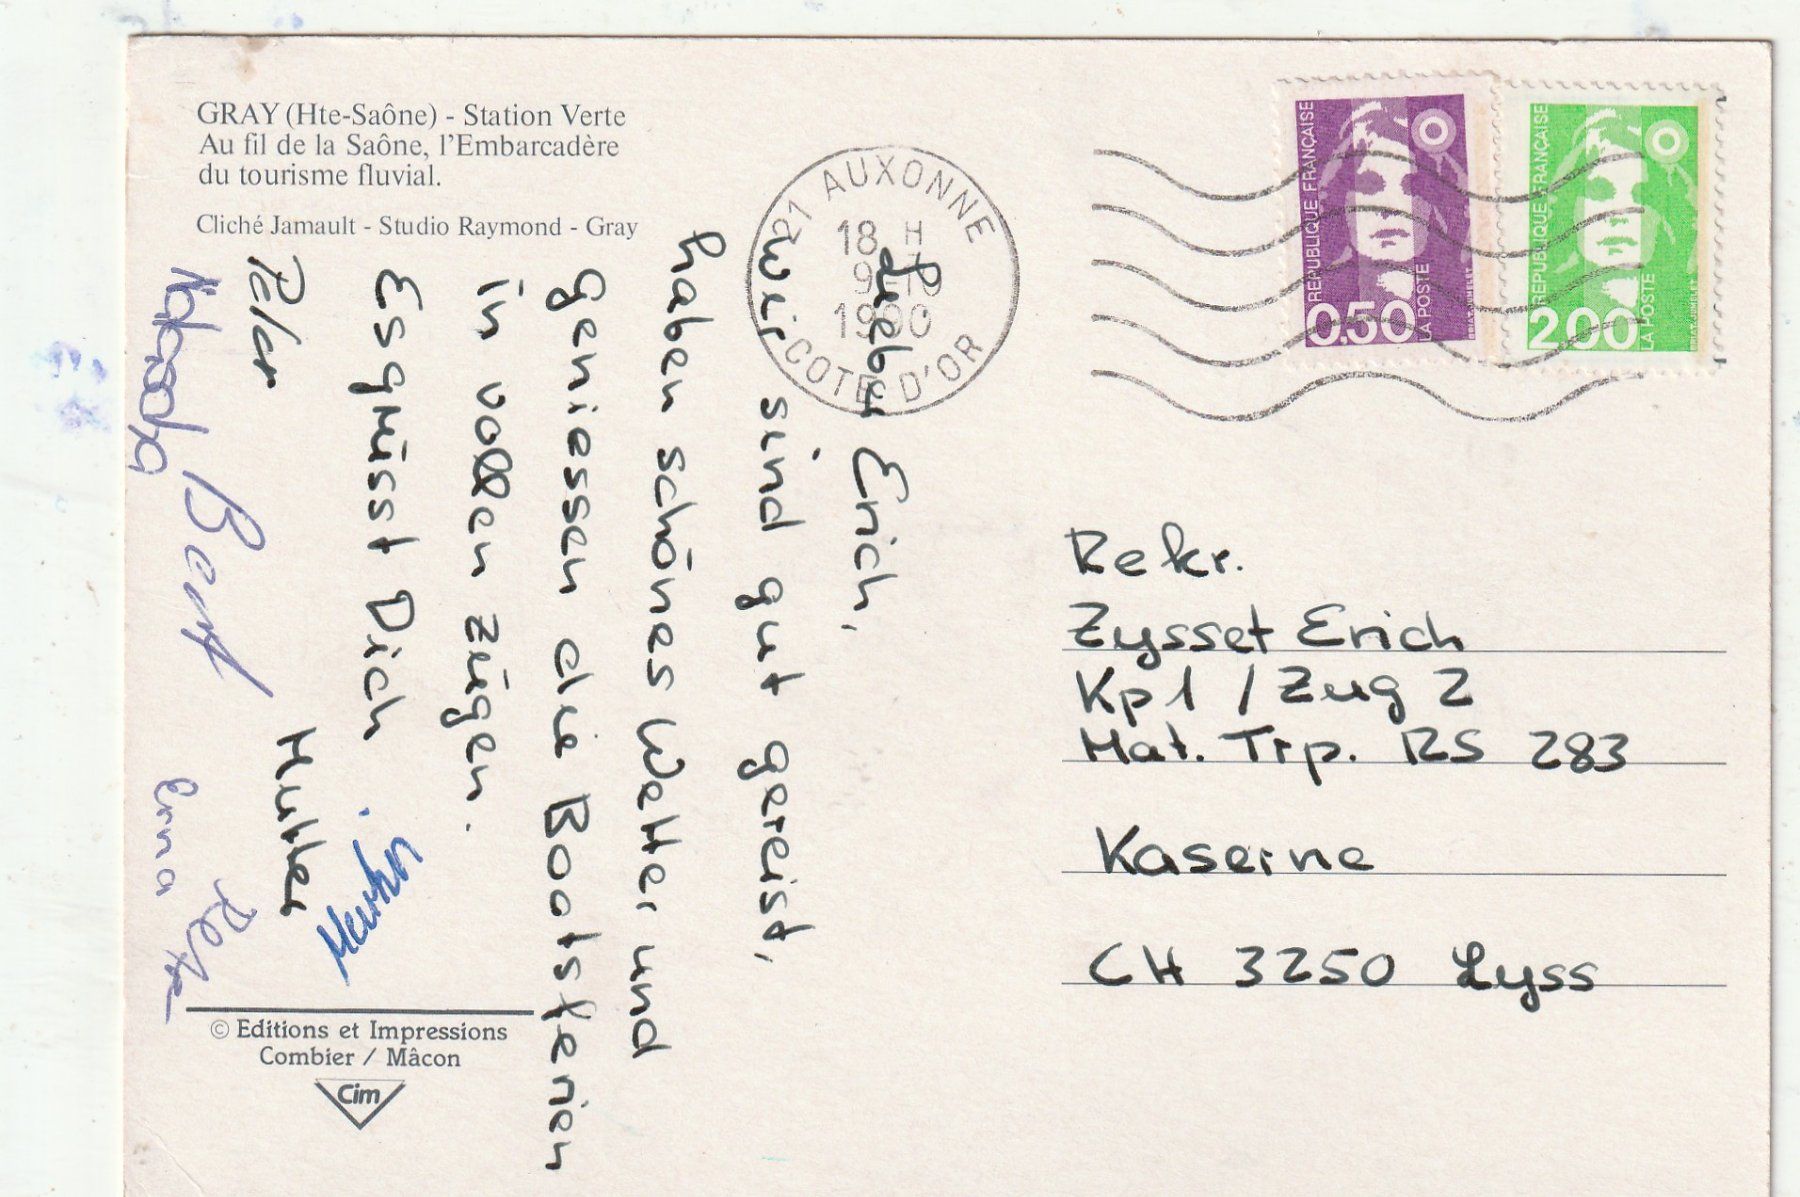 GRAY (Hte-Saône) - Station Verte
Au fil de la Saône, l'Embarcadère
du tourisme fluvial.
Cliché Jamault - Studio Raymond - Gray
21 AUXONNE
18 H
1990
COTE D'OR
REPUBLIQUE FRANÇAISE
0.50
LA POSTE
REPUBLIQUE FRANÇAISE
2.00
LA POSTE
Lieber Erich,
Wir sind gut gereist,
haben schönes Wetter und
geniessen die Bootsferien
in vollen zügen.
Es grüsst Dich
Peter
Mutter
Erna
Rekr.
Zysset Erich
Kp 1 / Zug 2
Mat. Trp. RS 283
Kaserne
CH 3250 Lyss
© Editions et Impressions
Combier / Mâcon
Cim